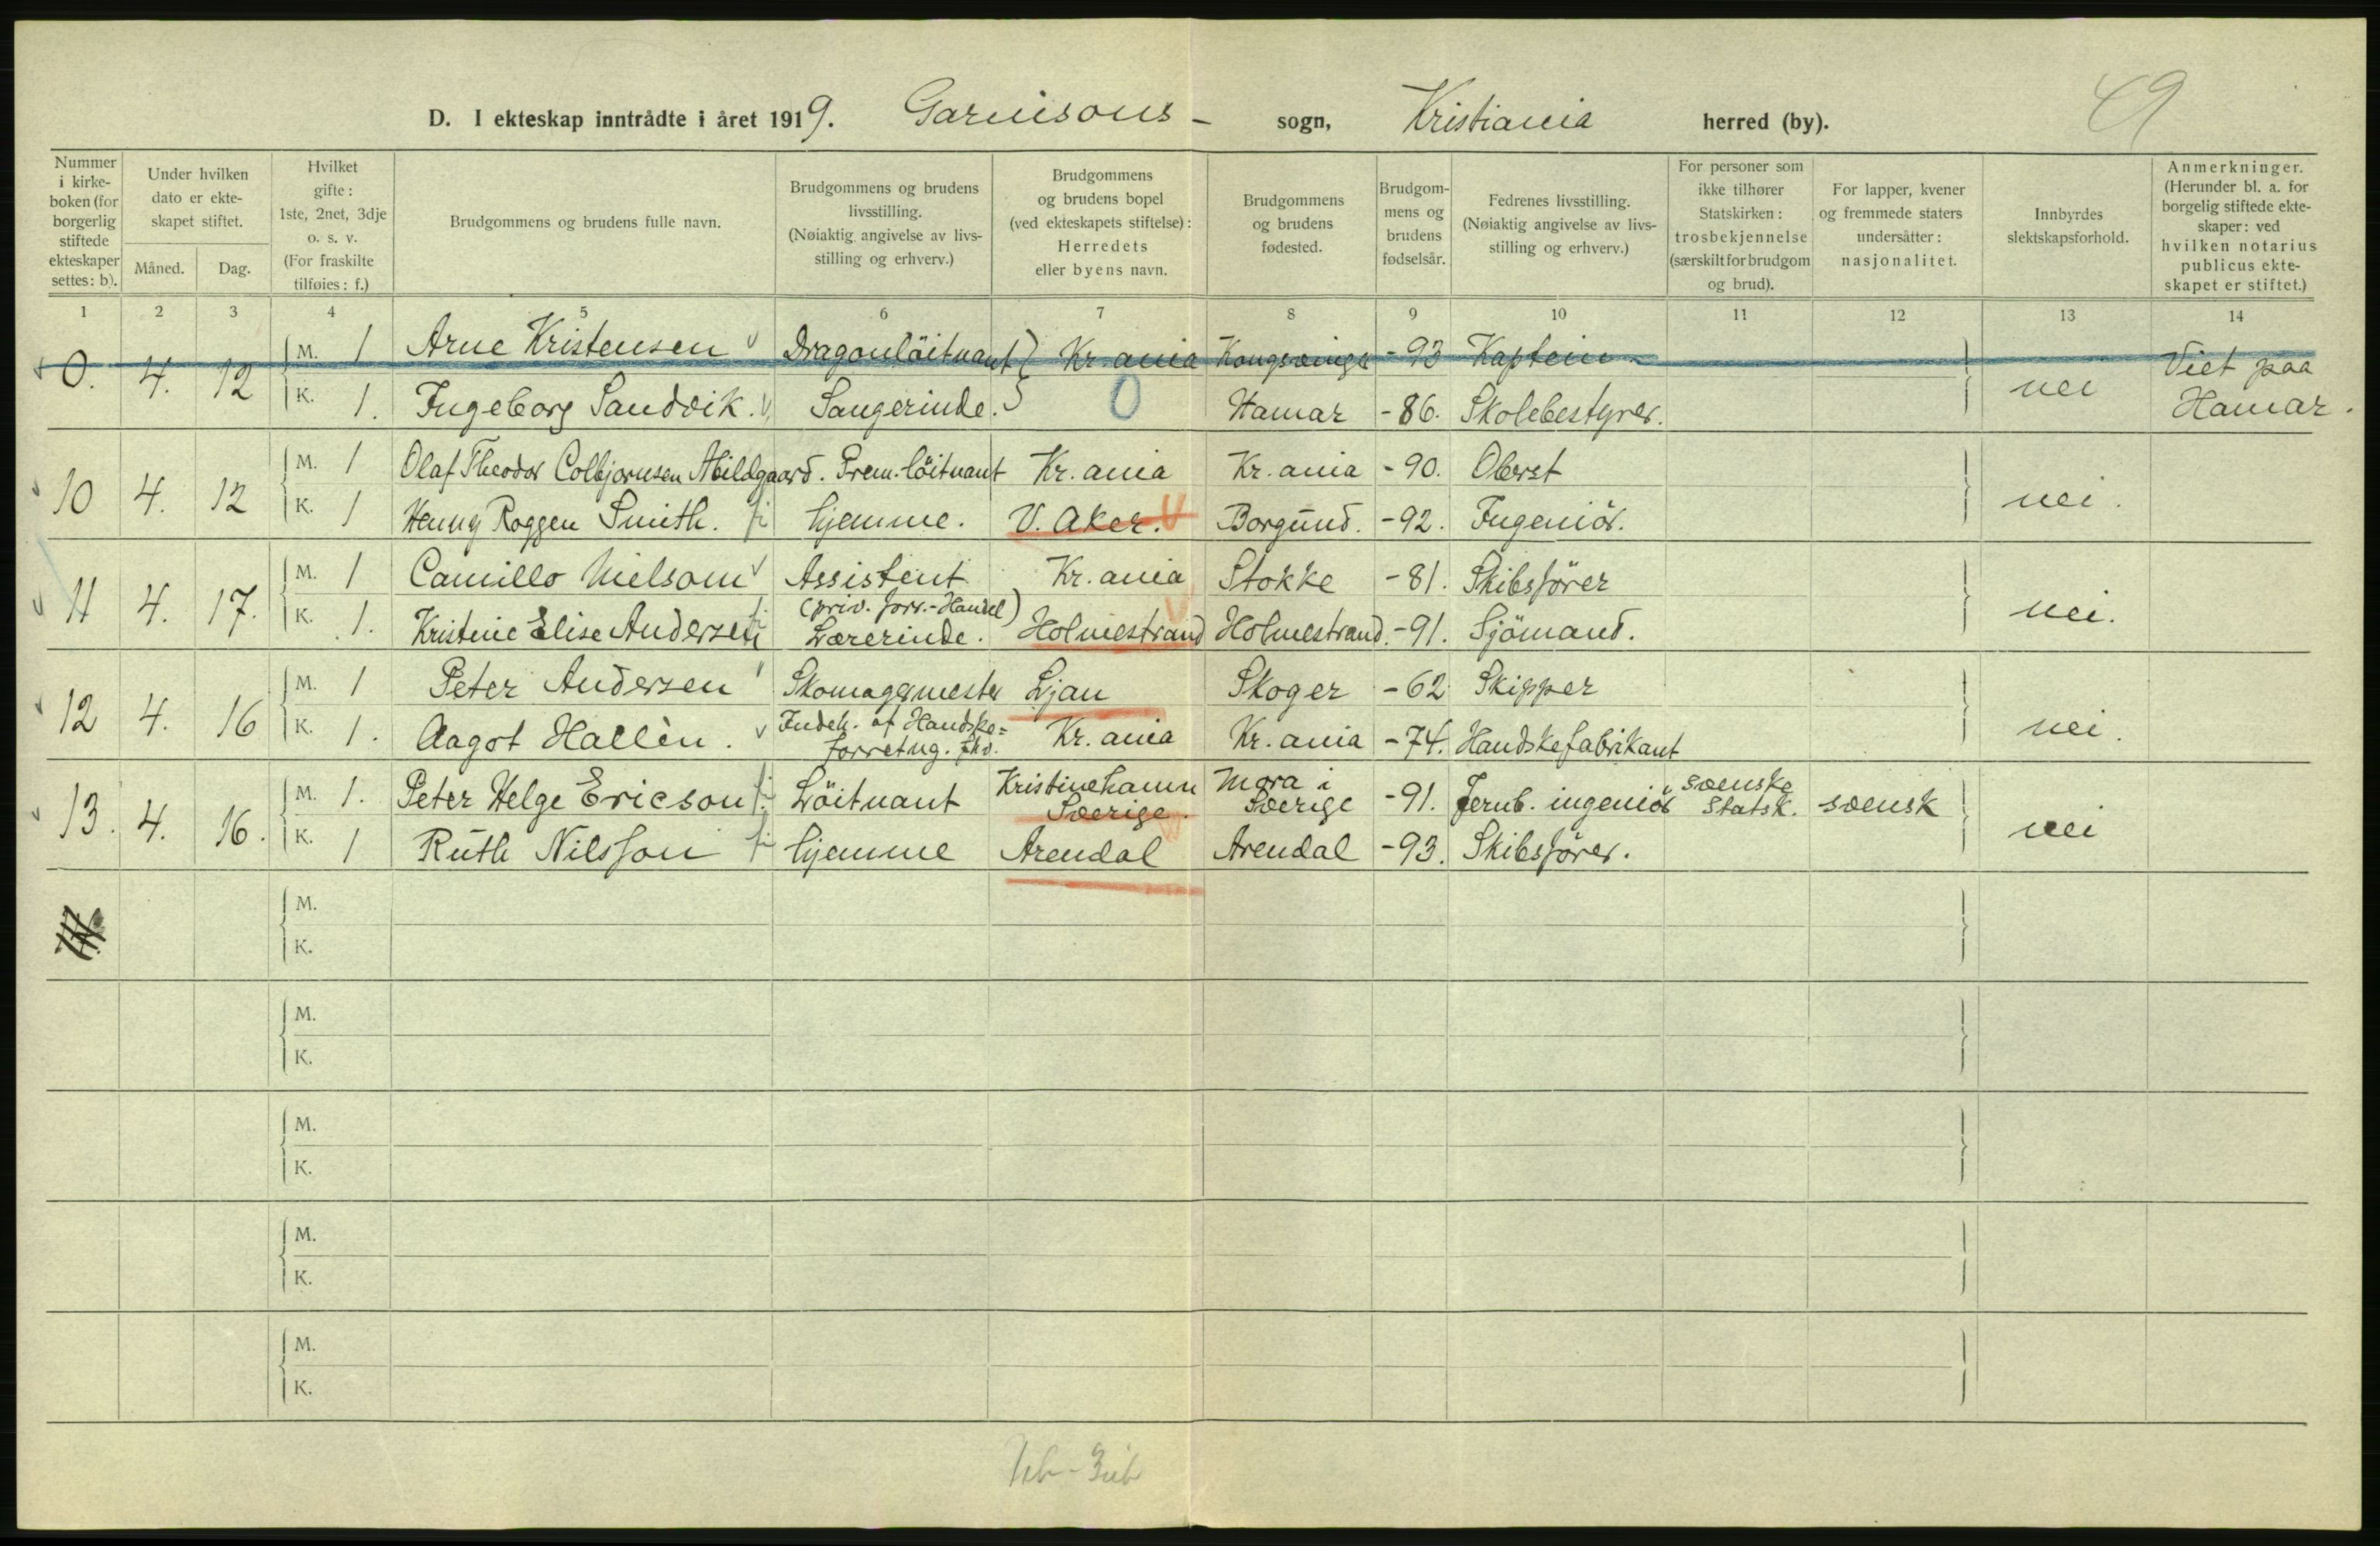 D. I ekteskap inntrådte i året 1919. Garnisons- sogn, Kristiania herred (by).
Nummer i kirkeboken (for borgerlig stiftede ekteskaper settes: b).
Under hvilken dato er ekteskapet stiftet.
Måned. Dag.
Hvilket gifte: 1ste, 2net, 3dje o. s. v. (For fraskilte tilføies: f.)
Brudgommens og brudens fulle navn.
Brudgommens og brudens livsstilling. (Nøiaktig angivelse av livsstilling og erhverv.)
Brudgommens og brudens bopel (ved ekteskapets stiftelse): Herredets eller byens navn.
Brudgommens og brudens fødested.
Brudgommens og brudens fødselsår.
Fedrenes livsstilling. (Nøiaktig angivelse av livsstilling og erhverv.)
For personer som ikke tilhører Statskirken: trosbekjennelse (særskilt for brudgom og brud).
For lapper, kvener og fremmede staters undersåtter: nasjonalitet.
Innbyrdes slektskapsforhold.
Anmerkninger. (Herunder bl. a. for borgelig stiftede ekteskaper: ved hvilken notarius publicus ekteskapet er stiftet.)
1 2 3 4 5 6 7 8 9 10 11 12 13 14
0. 4. 12 M. 1 Arne Kristensen Dragonlöitnant Kr.ania Kongsvinger -93 Kaptein nei Viet paa Hamar.
K. 1. Ingeborg Sandvik. Sangerinde. 0 Hamar -86. Skolebestyrer.
10 4. 12 M. 1 Olaf Theodor Colbjornsen Abildgaard. Prem.löitnant Kr.ania Kr.ania -90. Oberst nei.
K. 1 Henny Roggen Smith. hjemme. V. Aker. Borgund. -92. Ingeniör.
11 4. 17. M. 1 Camillo Nielsom Assistent (priv. forr.-Handel) Kr.ania Stokke -81. Skibsförer nei.
K. 1. Kristine Elise Andersen Lærerinde. Holmestrand Holmestrand. -91. Sjömand.
12 4. 16 M. 1 Peter Andersen Skomagermester Ljan Skoger -62 Skipper nei.
K. 1. Aagot Hallèn. Indeh. af Handske=forretng. Kr.ania Kr.ania -74. Handskefabrikant
13. 4. 16. M. 1. Peter Helge Ericson Löitnant Kristinehamn Sverige. Mora i Sverige -91. Jernb. ingeniör svenske Statsk. svensk nei
K. 1 Ruth Nilsson hjemme Arendal Arendal -93. Skibsförer.
M.
K.
M.
K.
M.
K.
M.
K.
M.
K.